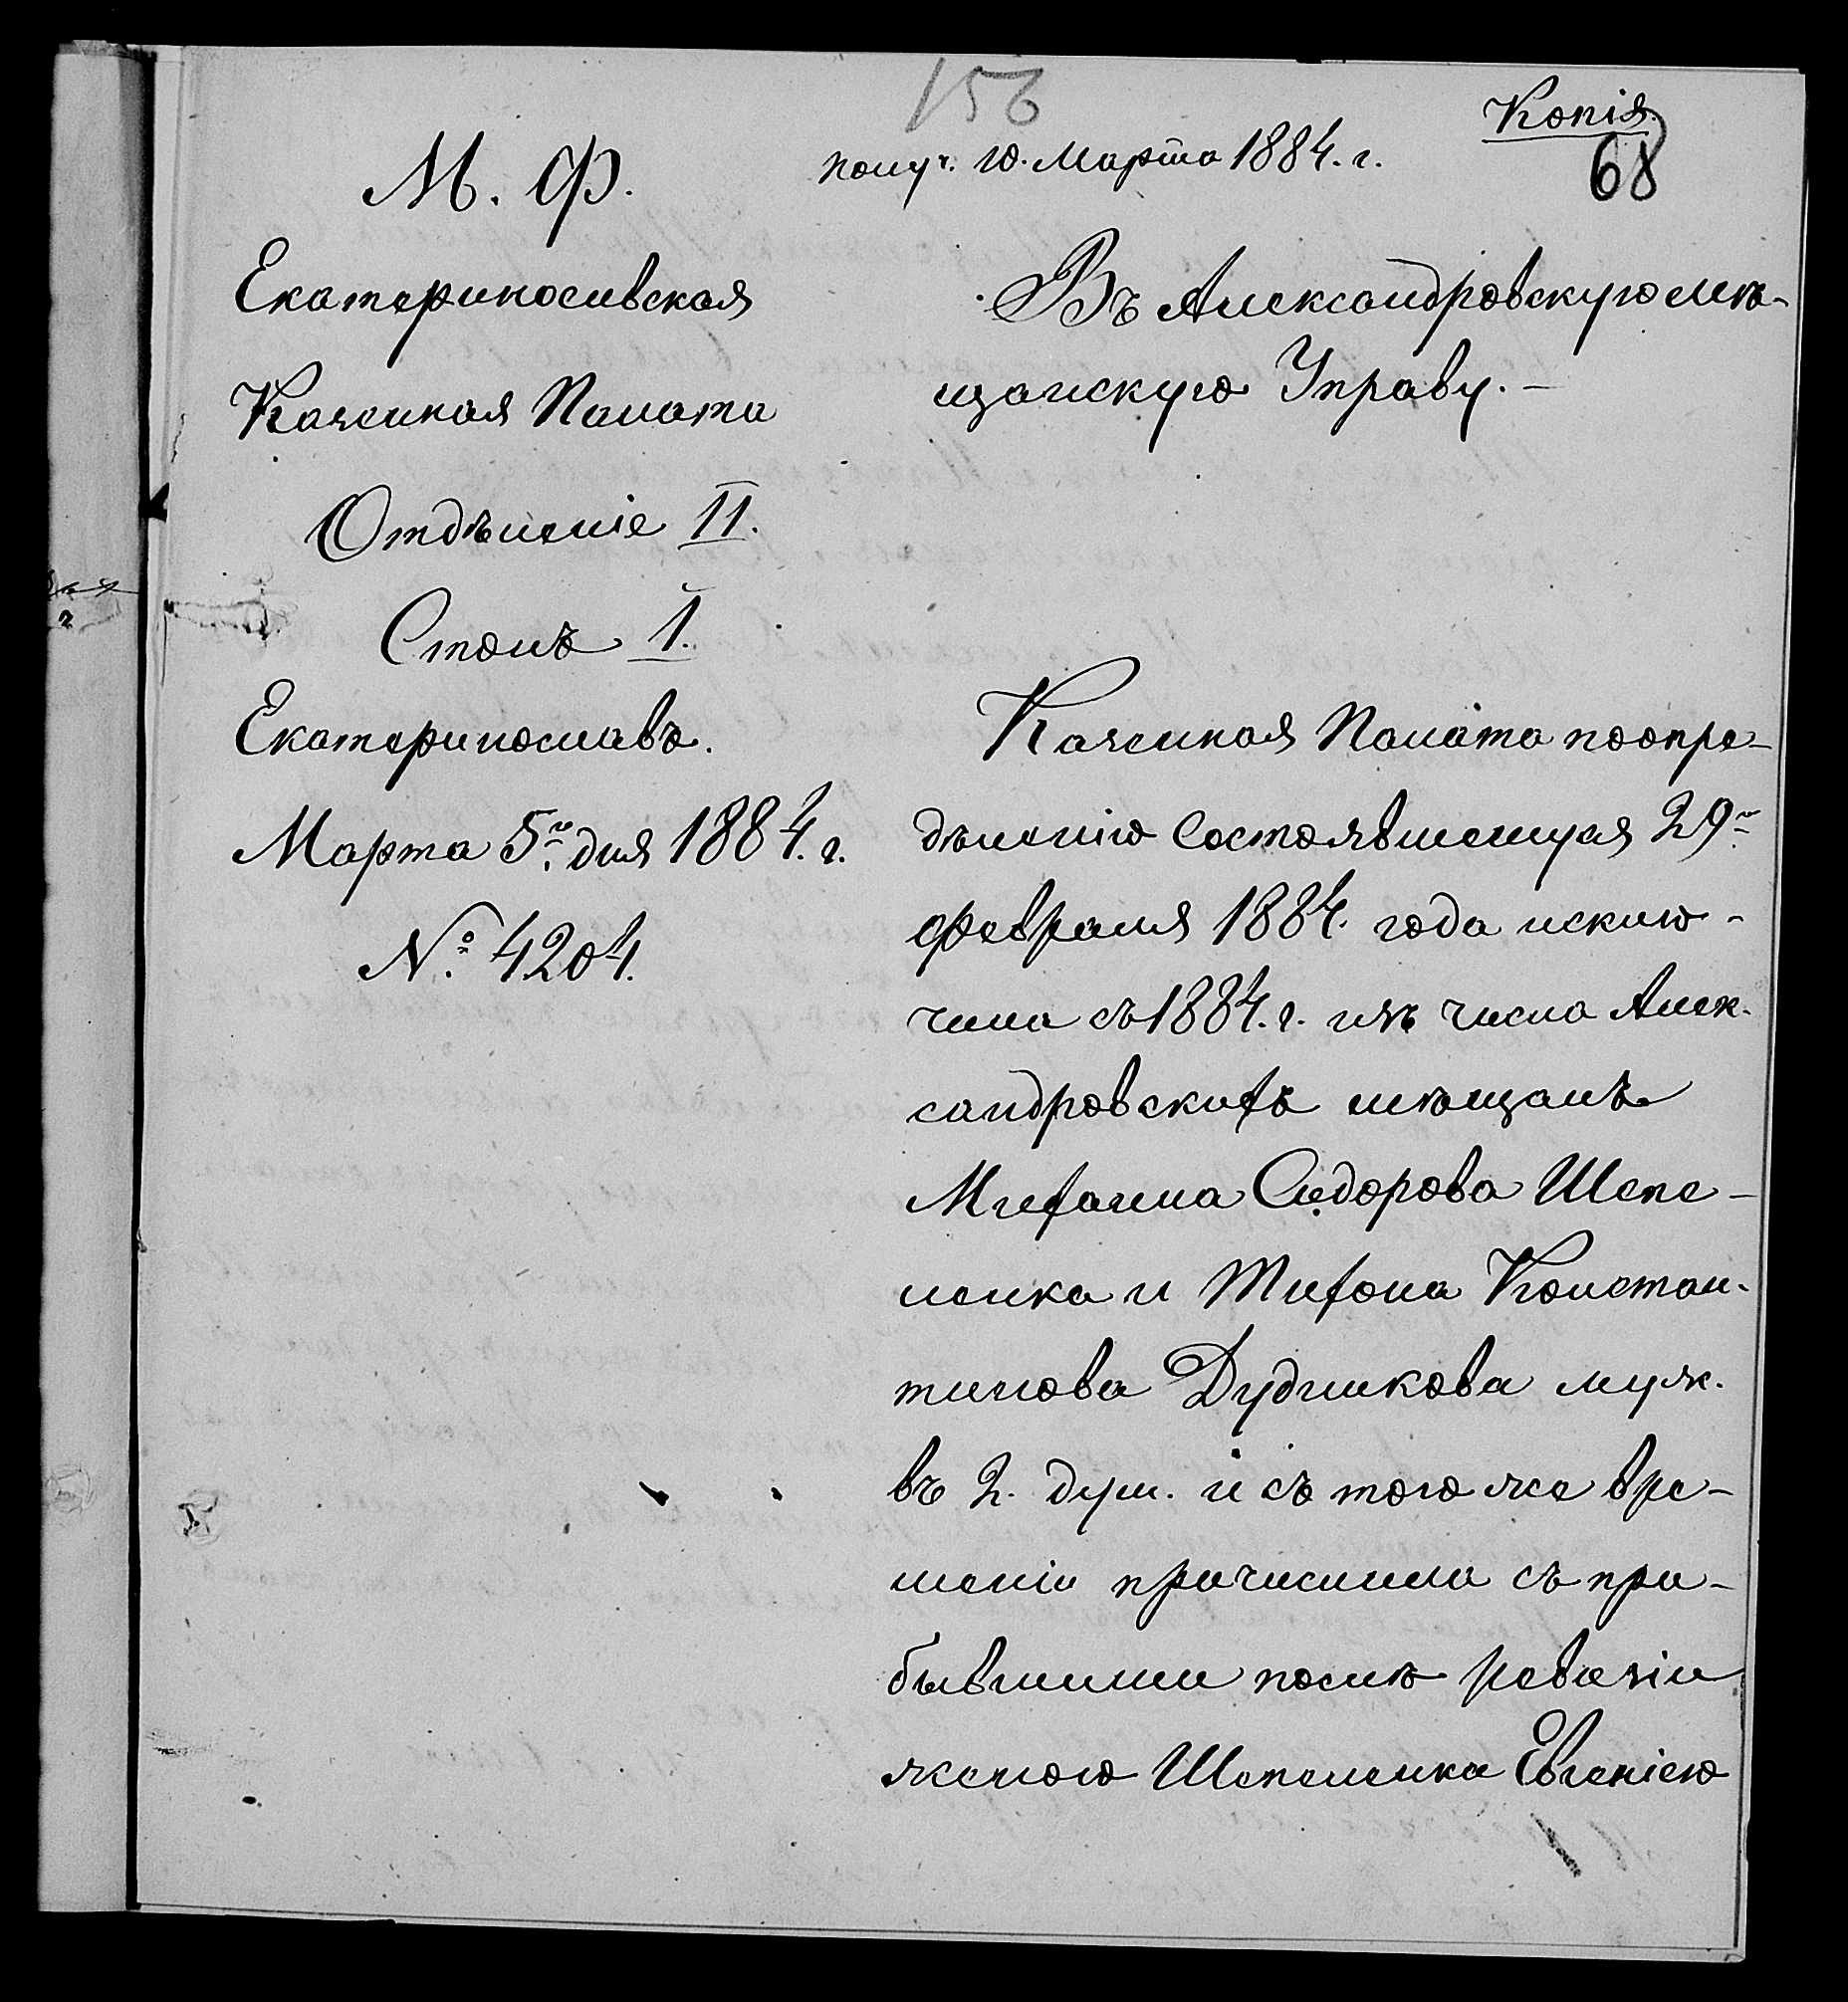 156
Копія.
68
получ. 10. Марта 1884. г.
М. Ф.
Екатеринославская
Казенная Палата
Отдѣленіе II.
Столъ 1.
Екатеринославъ.
Марта 5го дня 1884. г.
№ 4204.
Въ Александровскую мѣ-
щанскую Управу. –
Казенная Палата по опре-
дѣленію состоявшемуся 29го
февраля 1884. года исклю-
чила съ 1884. г. изъ числа Алек.
сандровскихъ мѣщанъ
Михаила Сидорова Шепе-
ленка и Тихона Констан.
тинова Дудникова муж.
въ 2. душ. и съ того же вре-
мени причислила съ при-
бывшими послѣ ревизіи
женою Шепеленка Евгеніею